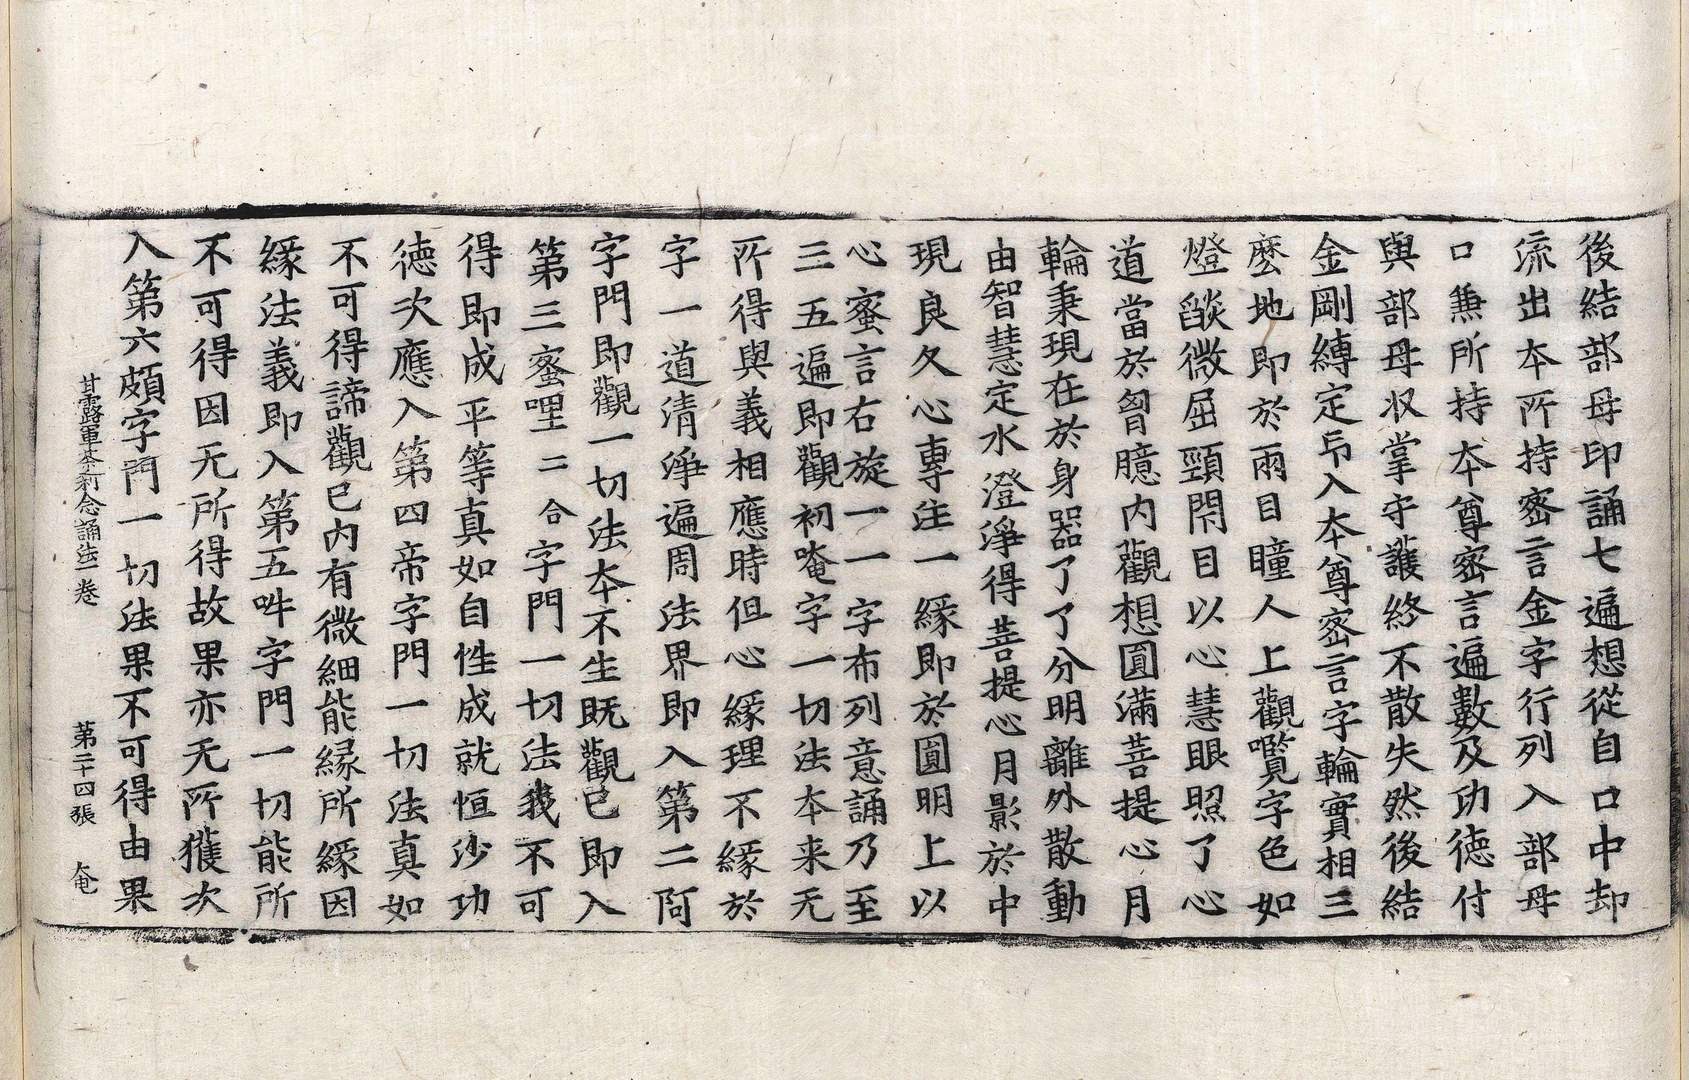 後結部母印誦七遍想從自口中却
流出夲所持密言金字行列入部母
口兼所持夲尊密言遍數及功徳付
與部母収掌守護終不散失然後結
金剛縛定印入夲尊密言字輪實相三
麽地即於兩目瞳人上觀囕字色如
燈燄微屈頸閇目以心慧眼照了心
道當於匈臆内觀想圓滿菩提心月
輪秉現在於身器了了分明離外散動
由智慧定水澄淨得菩提心月影於中
現良久心專注一縁即於圓明上以
心蜜言右旋一一字布列意誦乃至
三五遍即觀初唵字一切法夲来无
所得與義相應時但心縁理不縁於
字一道清淨遍周法界即入第二阿
字門即觀一切法夲不生既觀已即入
第三蜜哩二合字門一切法我不可
得即成平等真如自性成就恒沙功
徳次應入第四帝字門一切法真如
不可得諦觀已内有微細能縁所縁因
縁法義即入第五吽字門一切能所
不可得因无所得故果亦无所獲次
入第六頗字門一切法果不可得由果
甘露軍荼利念誦法一卷 第二十四張 奄